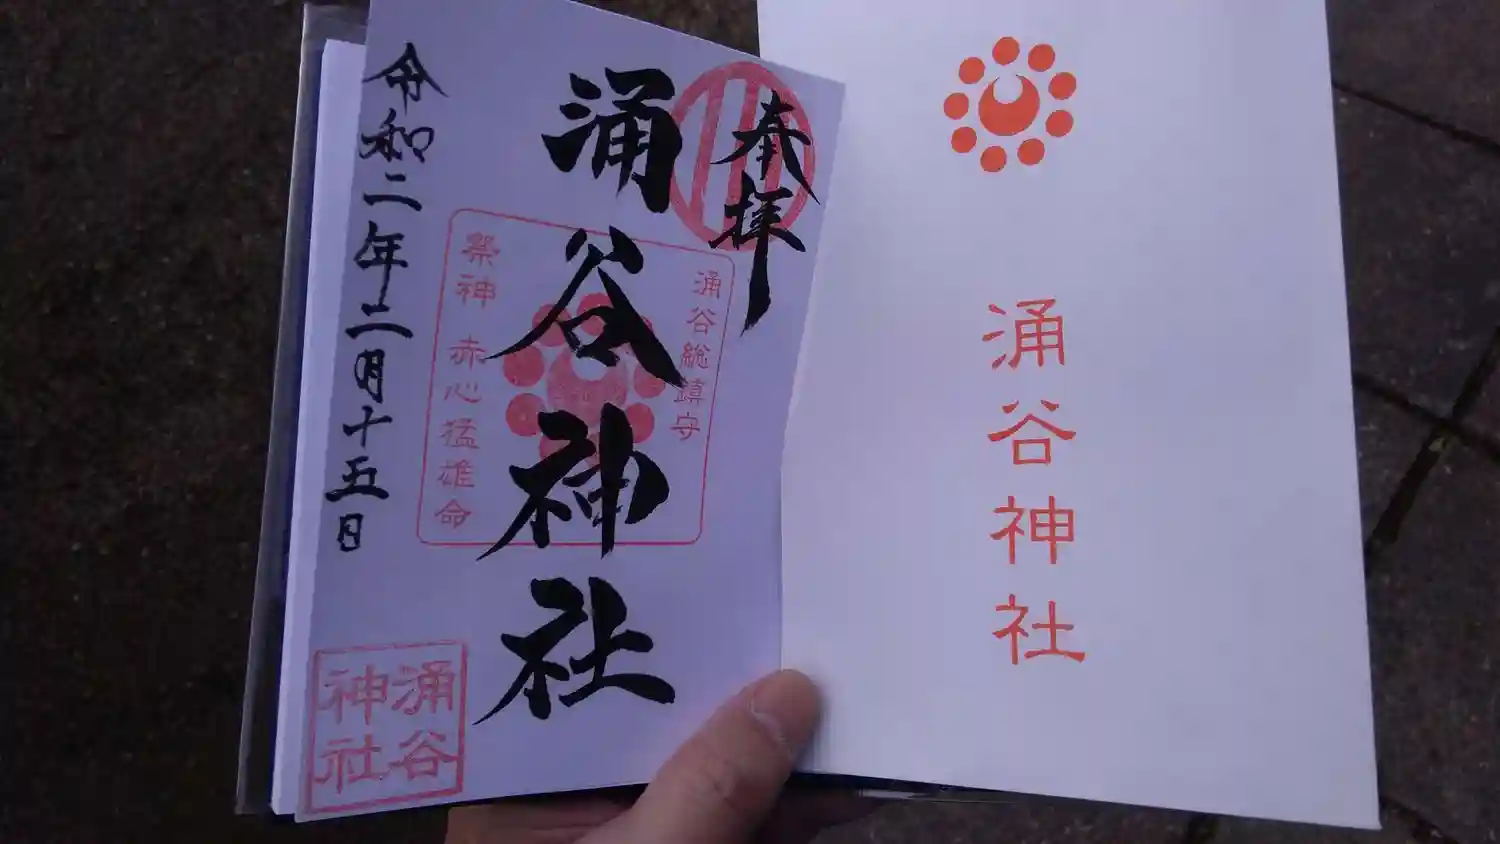 涌谷神社
奉拝
涌谷総鎮守
涌谷神社
祭神 赤心猛雄命
令和二年二月十五日
涌谷
神社